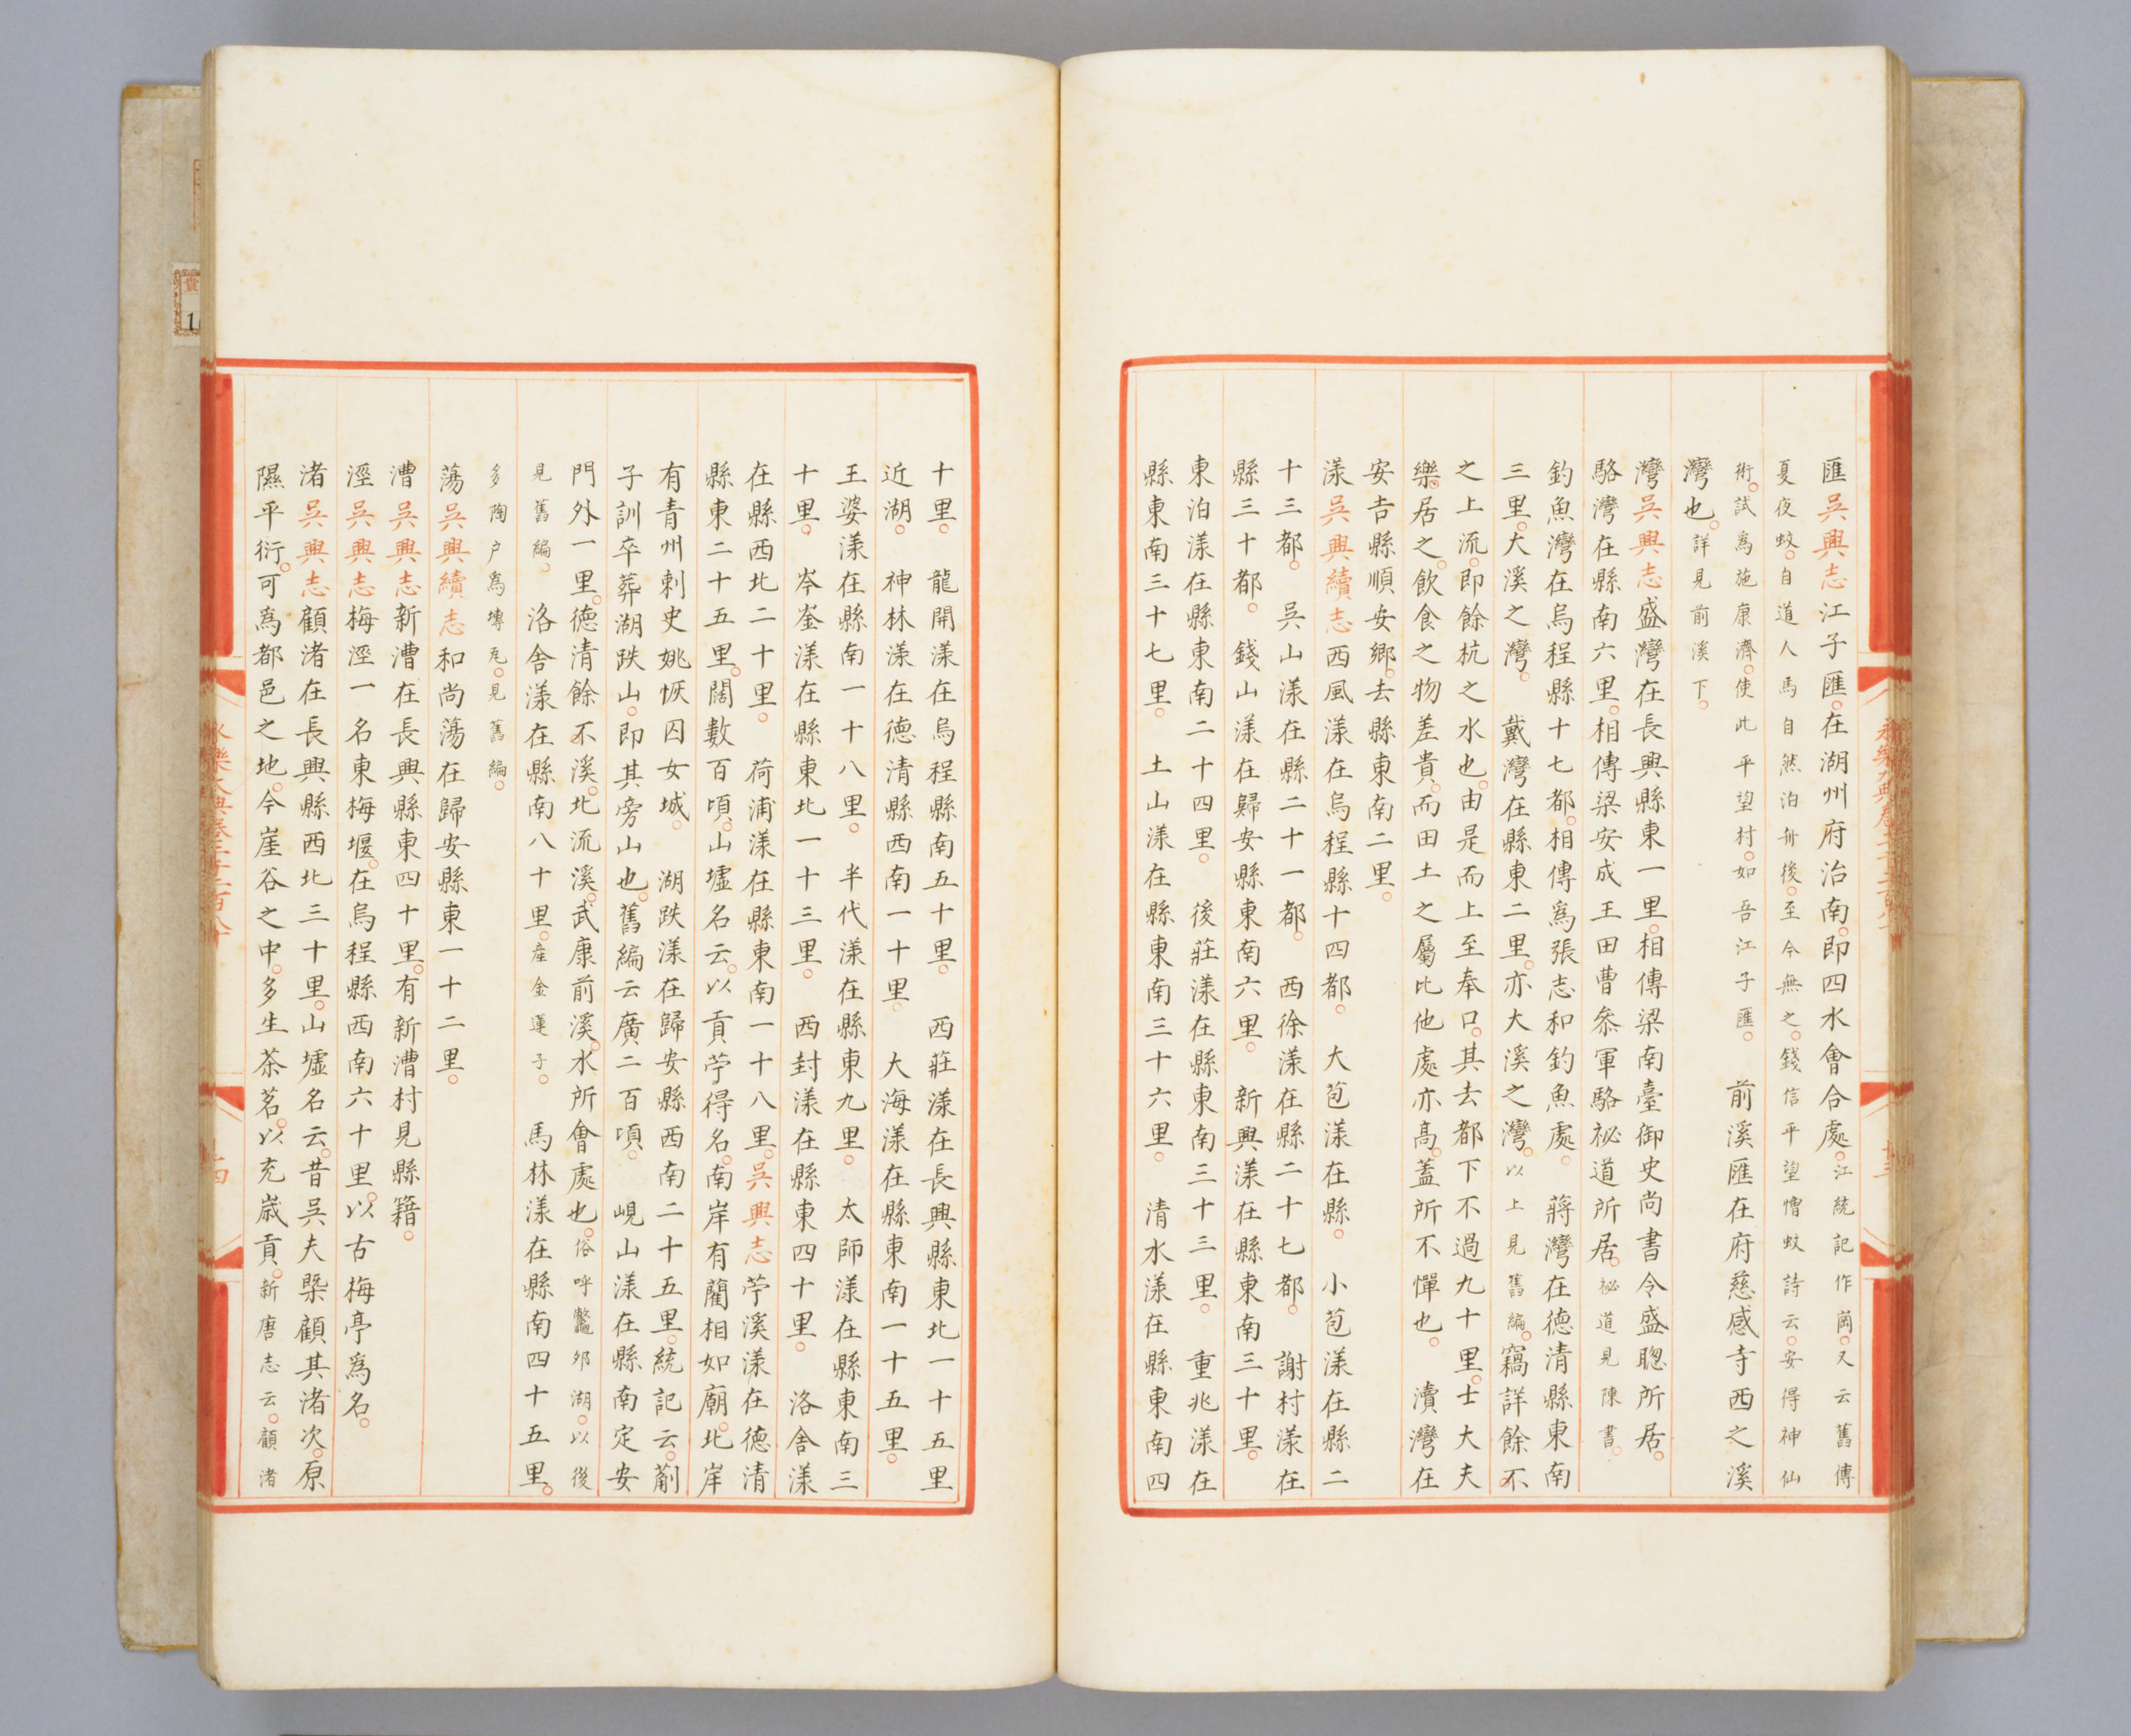 匯吳興志江子匯。在湖州府治南。即四水會合處。江統記作崗。又云舊傳
夏夜蚊。自道人馬自然泊舟後。至今無之。錢信平望憎蚊詩云。安得神仙
術。試爲施康濟。使此平望村。如吾江子匯。 前溪匯在府慈感寺西之溪
灣也。詳見前溪下。
灣吳興志盛灣在長興縣東一里。相傳梁南臺御史尚書令盛聰所居。
駱灣在縣南六里。相傳梁安成王田曹叅軍駱祕道所居。祕道見陳書。
釣魚灣在烏程縣十七都。相傳爲張志和釣魚處。 蔣灣在德清縣東南
三里。大溪之灣。 戴灣在縣東二里。亦大溪之灣。以上見舊編。竊詳餘不
之上流。即餘杭之水也。由是而上至奉口。其去都下不過九十里。士大夫
樂居之。飲食之物差貴。而田土之屬比他處亦高。蓋所不憚也。 瀆灣在
安吉縣順安鄉。去縣東南二里。
漾吳興續志西風漾在烏程縣十四都。 大苞漾在縣。 小苞漾在縣二
十三都。 吳山漾在縣二十一都。 西徐漾在縣二十七都。 謝村漾在
縣三十都。 錢山漾在歸安縣東南六里。 新興漾在縣東南三十里。
東泊漾在縣東南二十四里。 後莊漾在縣東南三十三里。 重兆漾在
縣東南三十七里。 土山漾在縣東南三十六里。 清水漾在縣東南四
十里。 龍開漾在烏程縣南五十里。 西莊漾在長興縣東北一十五里
近湖。 神林漾在德清縣西南一十里。 大海漾在縣東南一十五里。
王婆漾在縣南一十八里。 半代漾在縣東九里。 太師漾在縣東南三
十里。 岑崟漾在縣東北一十三里。 西封漾在縣東四十里。 洛舍漾
在縣西北二十里。 荷浦漾在縣東南一十八里。吳興志苧溪漾在德清
縣東二十五里。闊數百頃。山墟名云。以貢苧得名。南岸有藺相如廟。北岸
有青州刺史姚恢囚女城。 湖趺漾在歸安縣西南二十五里。統記云。蒯
子訓卒葬湖趺山。即其旁山也。舊編云廣二百頃。 峴山漾在縣南定安
門外一里。德清餘不溪。北流溪。武康前溪。水所會處也。俗呼鼈邜湖。以後
見舊編。 洛舍漾在縣南八十里。産金蓮子。 馬林漾在縣南四十五里。
多陶户爲塼瓦。見舊編。
蕩吳興續志和尚蕩在歸安縣東一十二里。
漕吳興志新漕在長興縣東四十里。有新漕村見縣籍。
涇吳興志梅涇一名東梅堰。在烏程縣西南六十里。以古梅亭爲名。
渚吳興志顧渚在長興縣西北三十里。山墟名云。昔吳夫槩顧其渚次。原
隰平衍。可爲都邑之地。今崖谷之中。多生茶茗。以充歲貢。新唐志云。顧渚